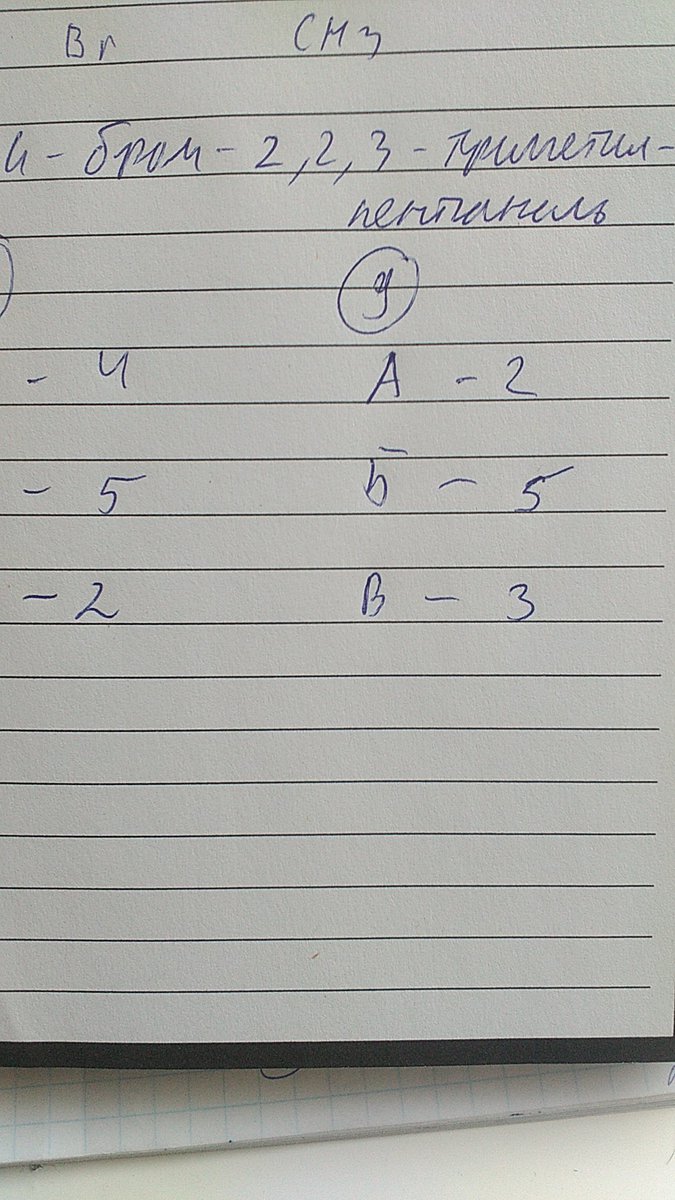 Br CH3
4 - бром - 2,2,3 - триметил-
пентаналь
9
- 4 А - 2
- 5 Б - 5
- 2 В - 3